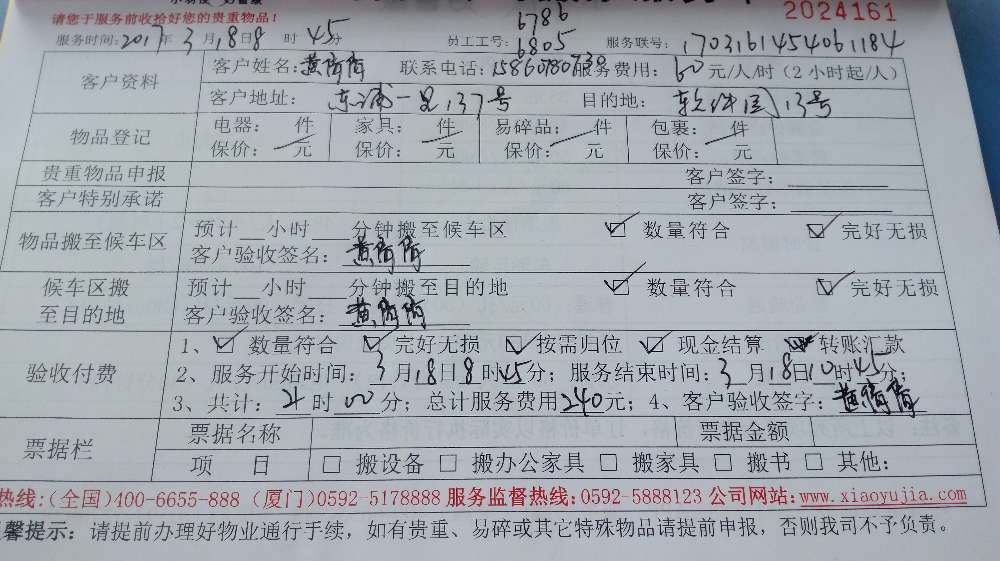 请您于服务前收拾好您的贵重物品！ 2024161
服务时间：2017年3月18日8时45分 员工工号：6786 6805 服务联号：1703161454061184
客户资料 客户姓名： 联系电话： 服务费用：60元/人/时（2小时起/人）
客户地址： 目的地：软件园13号
物品登记 电器： 件 家具： 件 易碎品： 件 包裹： 件
保价： 元 保价： 元 保价： 元 保价： 元
贵重物品申报 客户签字：
客户特别承诺 客户签字：
物品搬至候车区 预计__小时___分钟搬至候车区 ☑ 数量符合 ☑ 完好无损
客户验收签名：
候车区搬至目的地 预计__小时___分钟搬至目的地 ☑ 数量符合 ☑ 完好无损
客户验收签名：
验收付费 1、☑ 数量符合 ☑ 完好无损 ☑ 按需归位 ☑ 现金结算 转账汇款
2、服务开始时间：3月18日8时45分；服务结束时间：3月18日10时45分；
3、共计：4时00分；总计服务费用240元；4、客户验收签字：
票据栏 票据名称 票据金额
项 目 □ 搬设备 □ 搬办公家具 □ 搬家具 □ 搬书 □ 其他：
热线：(全国)400-6655-888 (厦门)0592-5178888 服务监督热线：0592-5888123 公司网站：www.xiaoyujia.com
馨提示：请提前办理好物业通行手续，如有贵重、易碎或其它特殊物品请提前申报，否则我司不予负责。